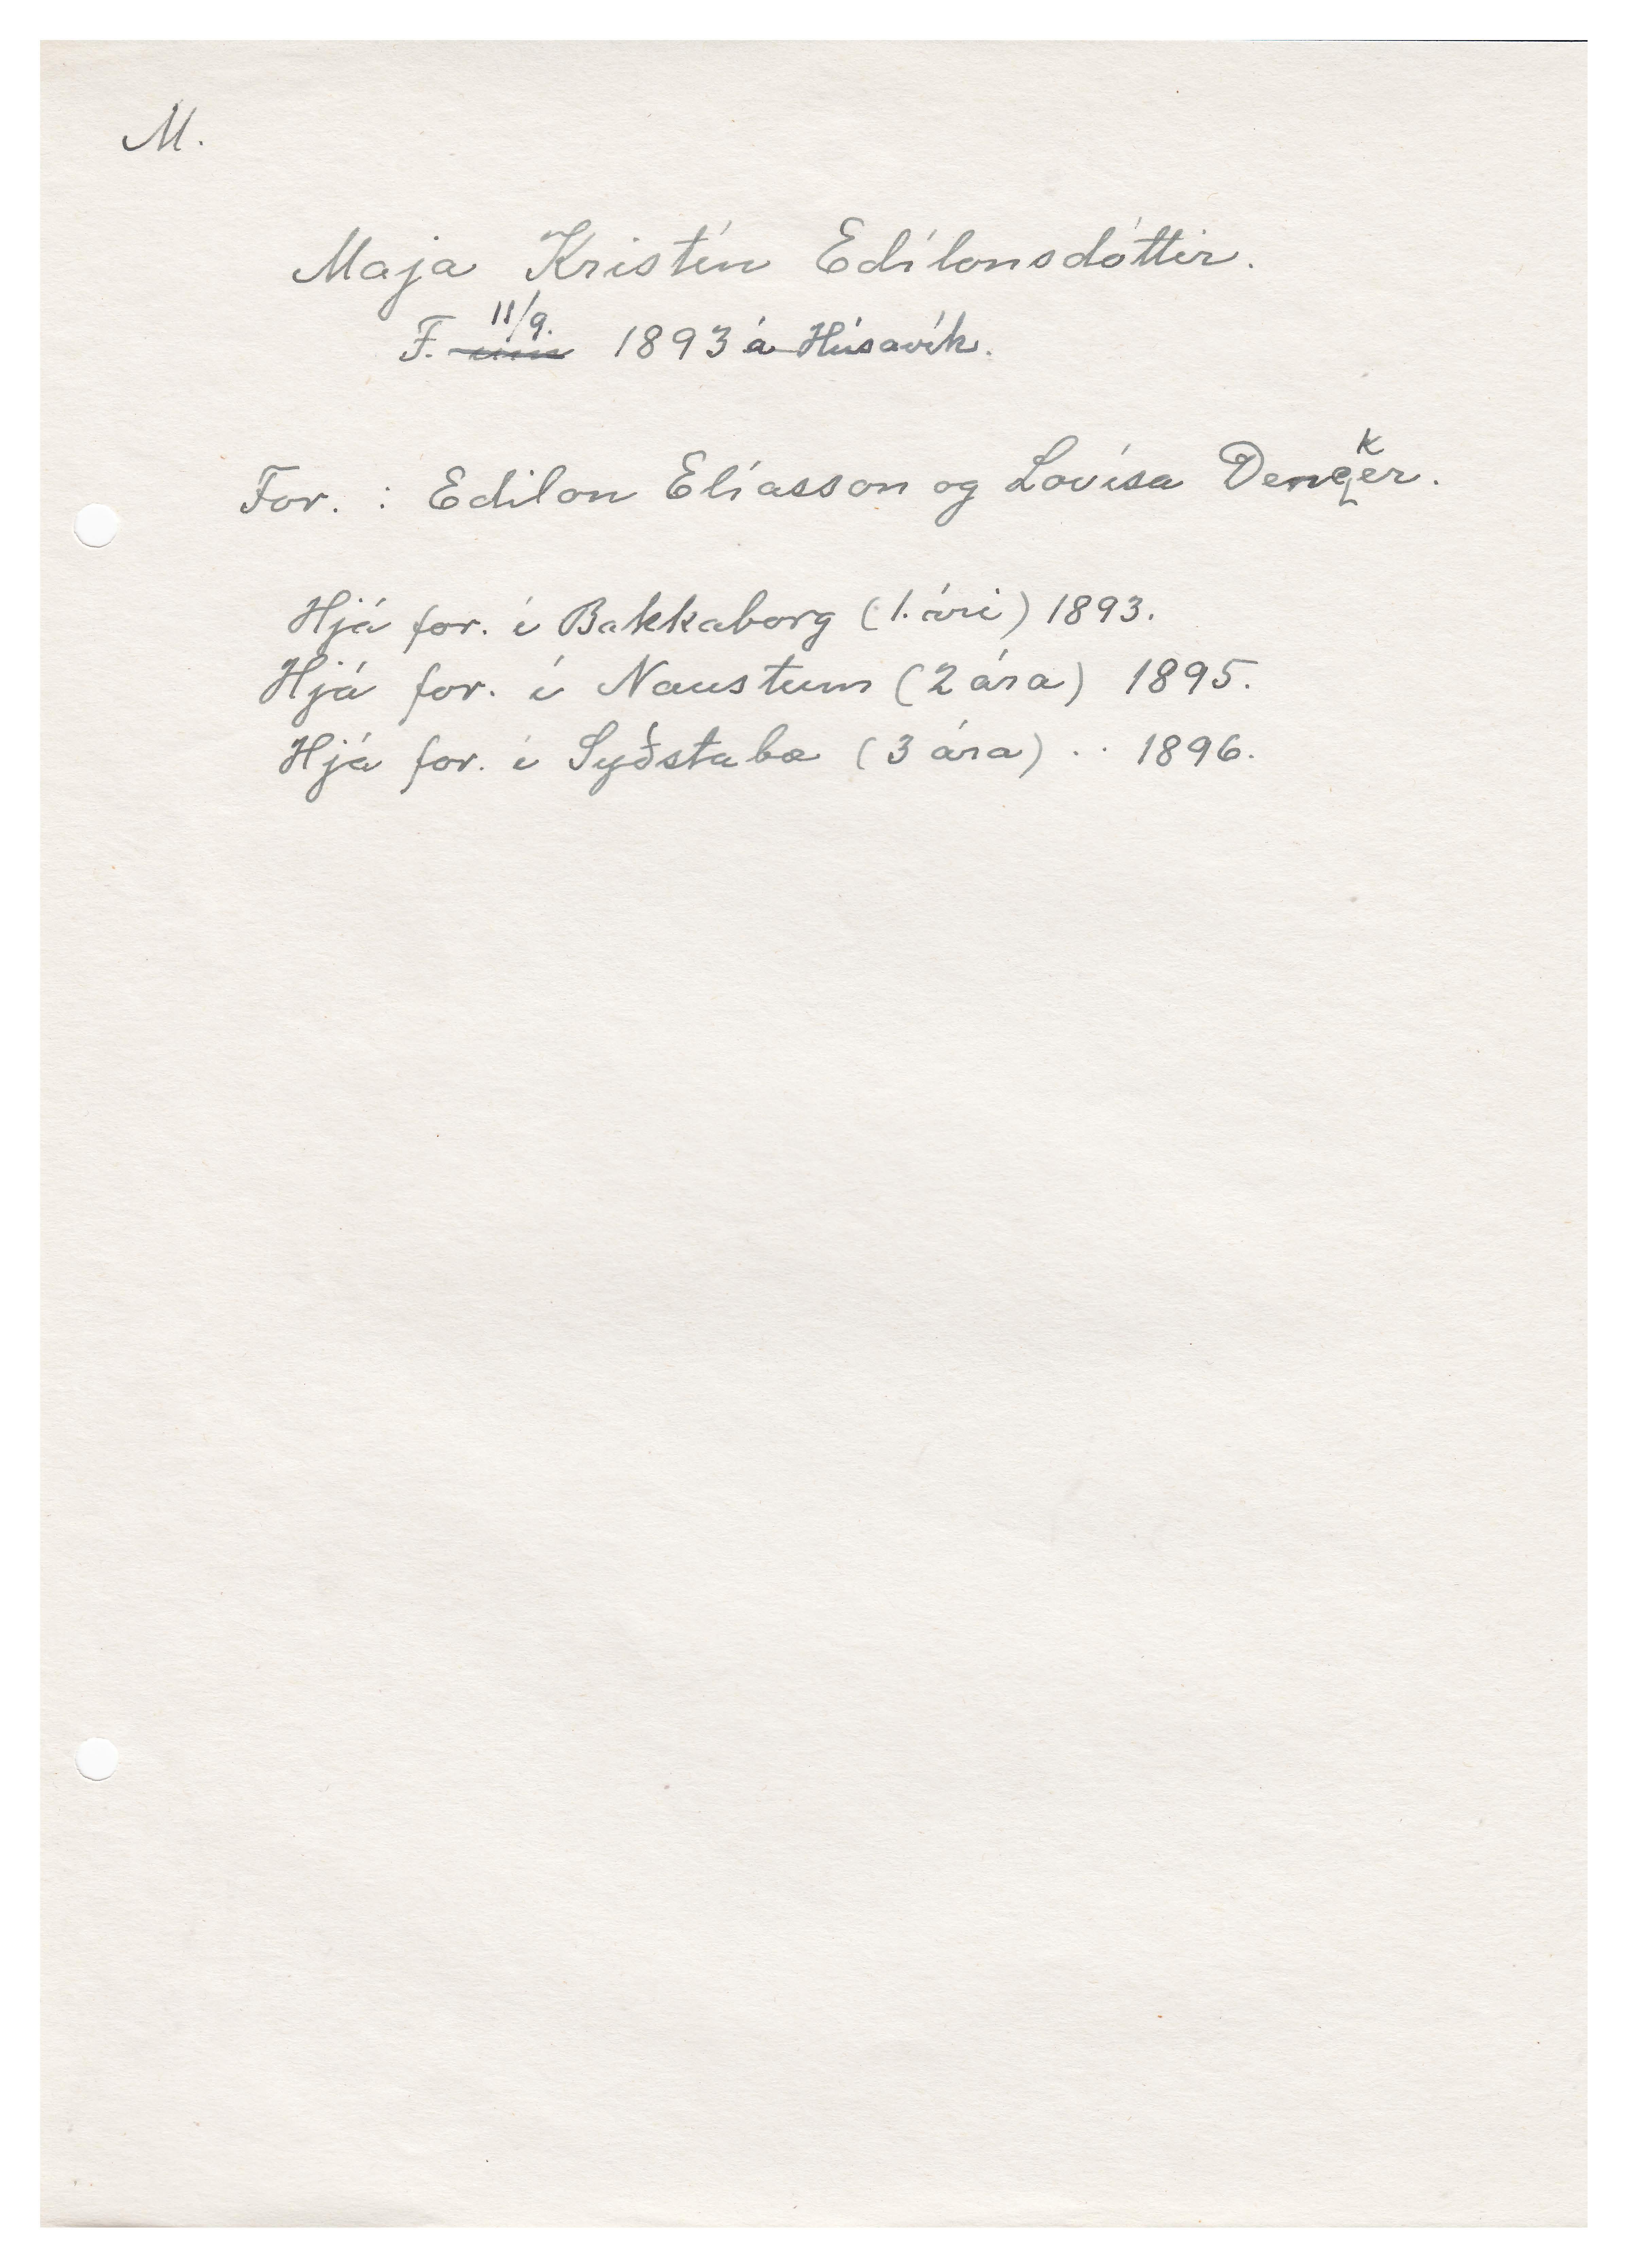 M.
Maja Kristín Edílonsdóttir.
F. um 11/9. 1893 á Húsavík.
For. : Edilon Elíasson og Lovísa Dengker.
Hjá for. í Bakkaborg (1. ári) 1893.
Hjá for. í Naustum (2 ára) 1895.
Hjá for. í Syðstabæ (3 ára) .. 1896.